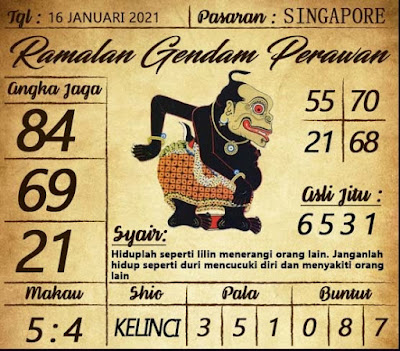 Tgl : 16 JANUARI 2021
Pasaran : SINGAPORE
Ramalan Gendam Perawan
Angka Jaga
84
69
21
55 70
21 68
Asli Jitu :
6 5 3 1
Syair:
Hiduplah seperti lilin menerangi orang lain. Janganlah
hidup seperti duri mencucuki diri dan menyakiti orang
lain
Makau
5 : 4
Shio
KELINCI
Pala
3 5 1
Buntut
0 8 7